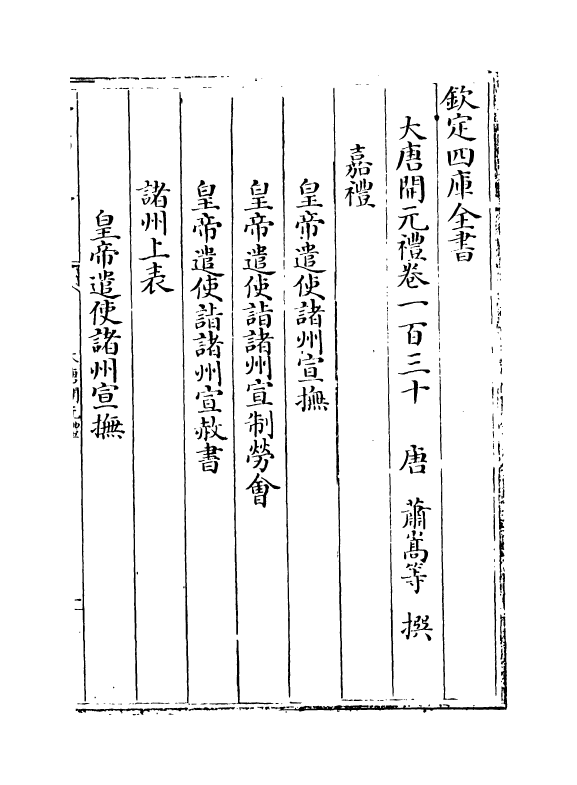 欽定四庫全書
大唐開元禮卷一百三十　唐　蕭嵩等　撰
嘉禮
皇帝遣使諸州宣撫
皇帝遣使詣諸州宣制勞會
皇帝遣使詣諸州宣赦書
諸州上表
皇帝遣使諸州宣撫
大唐開元禮